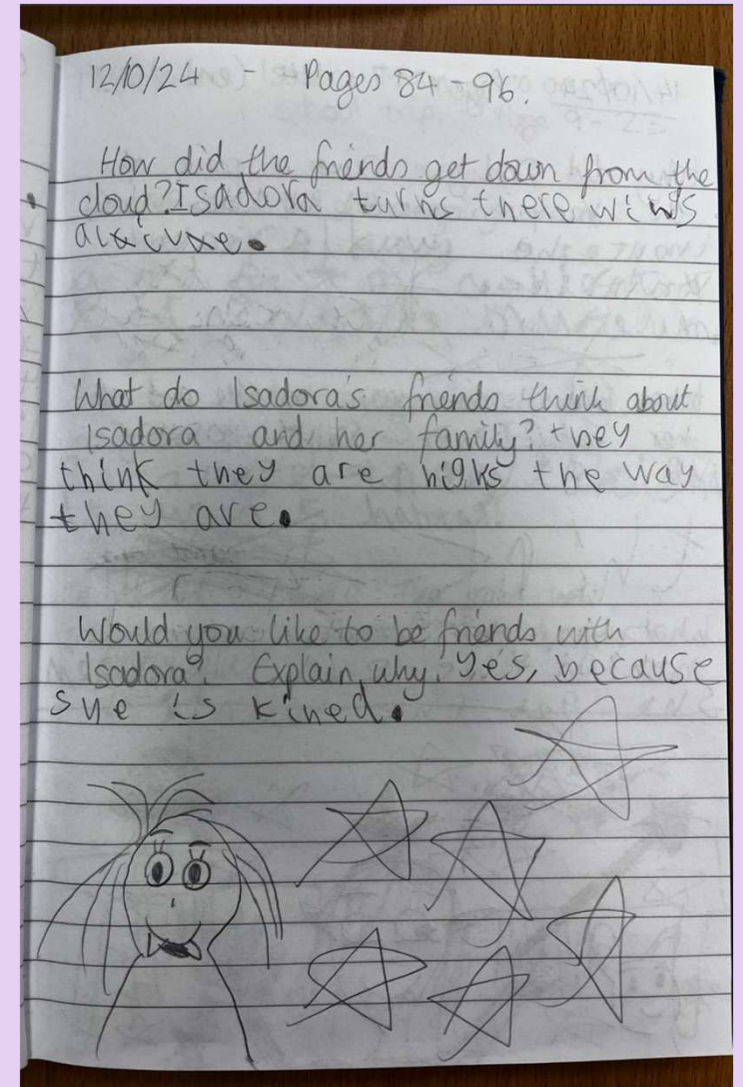 12/10/24 - Pages 84-96.
How did the friends get down from the
cloud? Isadora turns there wings
What do Isadora's friends think about
Isadora and her family? they
think they are the way
they are.
Would you like to be friends with
Isadora? Explain why. Yes, because
she is kined.